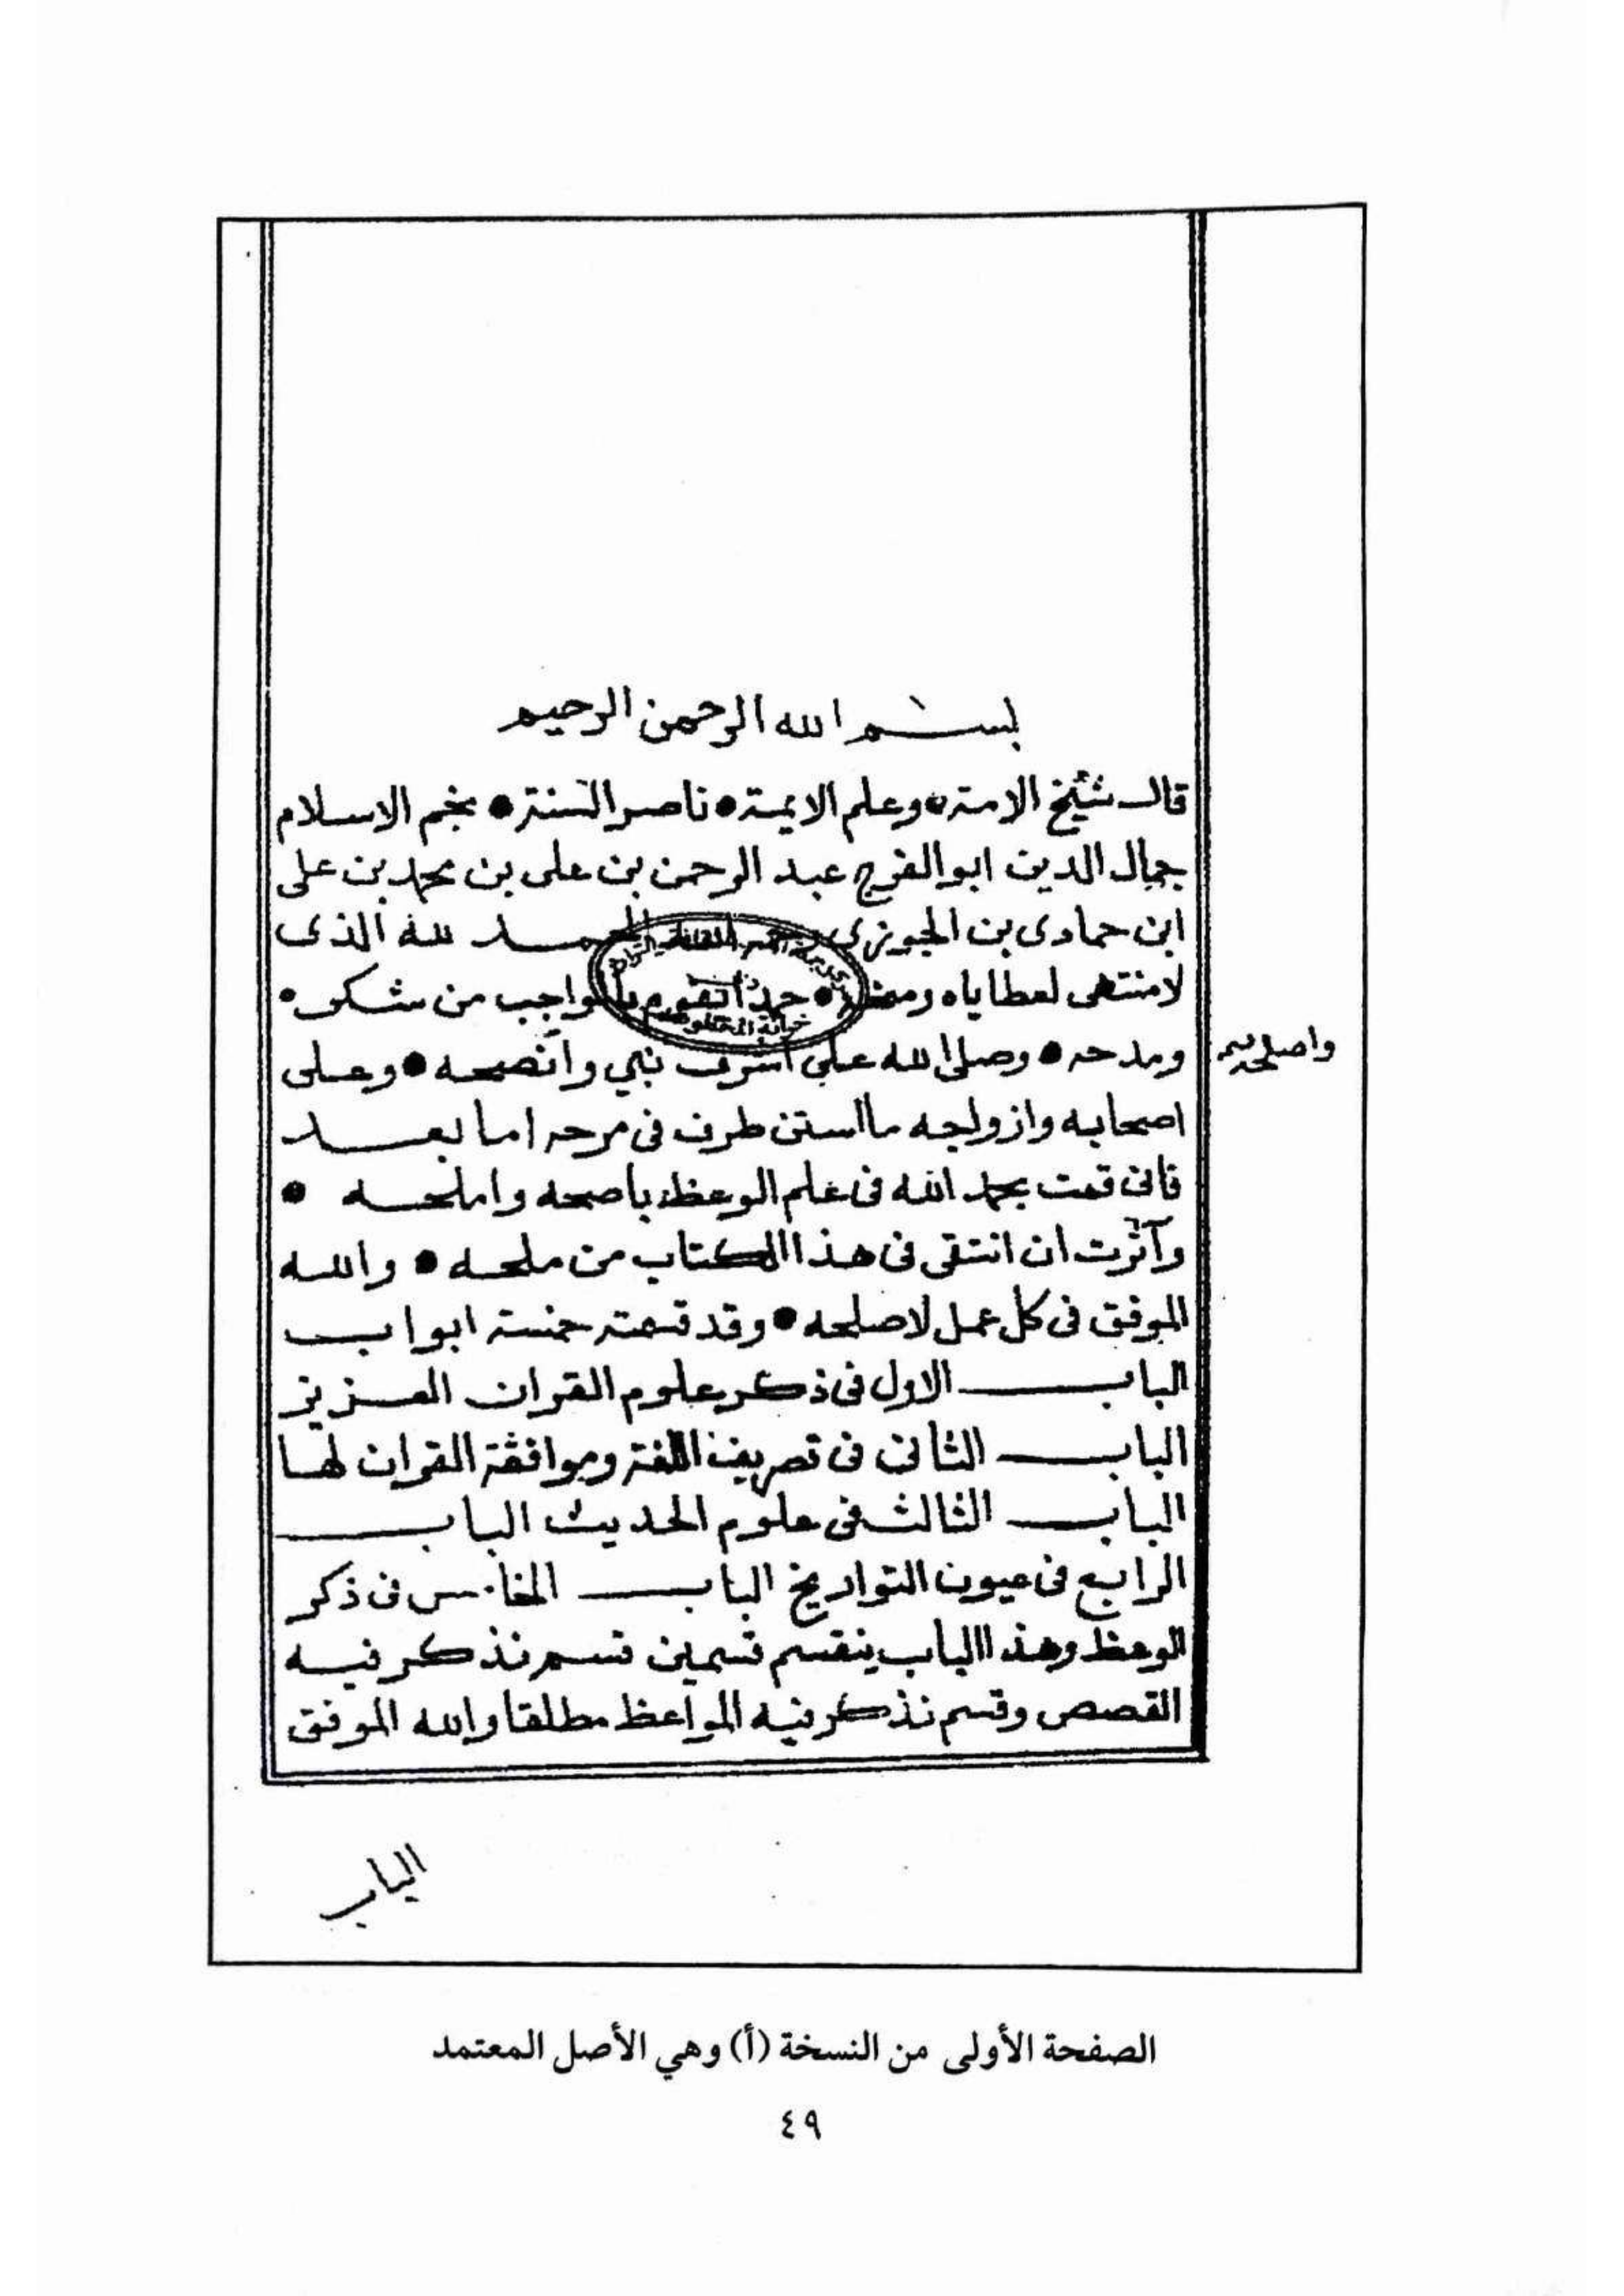 بسم الله الرحمن الرحيم
قال شيخ الامة • وعلم الايمة • ناصر السنة • نجم الاسلام
جمال الدين ابو الفرج عبد الرحمن بن على بن محمد بن على
ابن حمادى بن الجوزى الحمد لله الذى
لا منتهى لعطاياه ومنحه • حمدا تقوم بالواجب من شكره •
ومدحه • وصلى الله على اشرف نبي وانصحه • وعلى
اصحابه وازواجه ما استن طرف فى مرحه اما بعد
فانى قمت بحمد الله فى علم الوعظ باصحه واملحه •
وآثرت ان انتقى فى هذا الكتاب من ملحه • والله
الموفق فى كل عمل لاصلحه • وقد قسمته خمسة ابواب
الباب الاول فى ذكر علوم القران العزيز
الباب الثانى فى تصريف اللغة وموافقة القران لها
الباب الثالث فى علوم الحديث الباب
الرابع فى عيون التواريخ الباب الخامس فى ذكر
الوعظ وهذا الباب ينقسم قسمين قسم نذكر فيه
القصص وقسم نذكر فيه المواعظ مطلقا والله الموفق
الباب
الصفحة الأولى من النسخة (أ) وهي الأصل المعتمد
٤٩